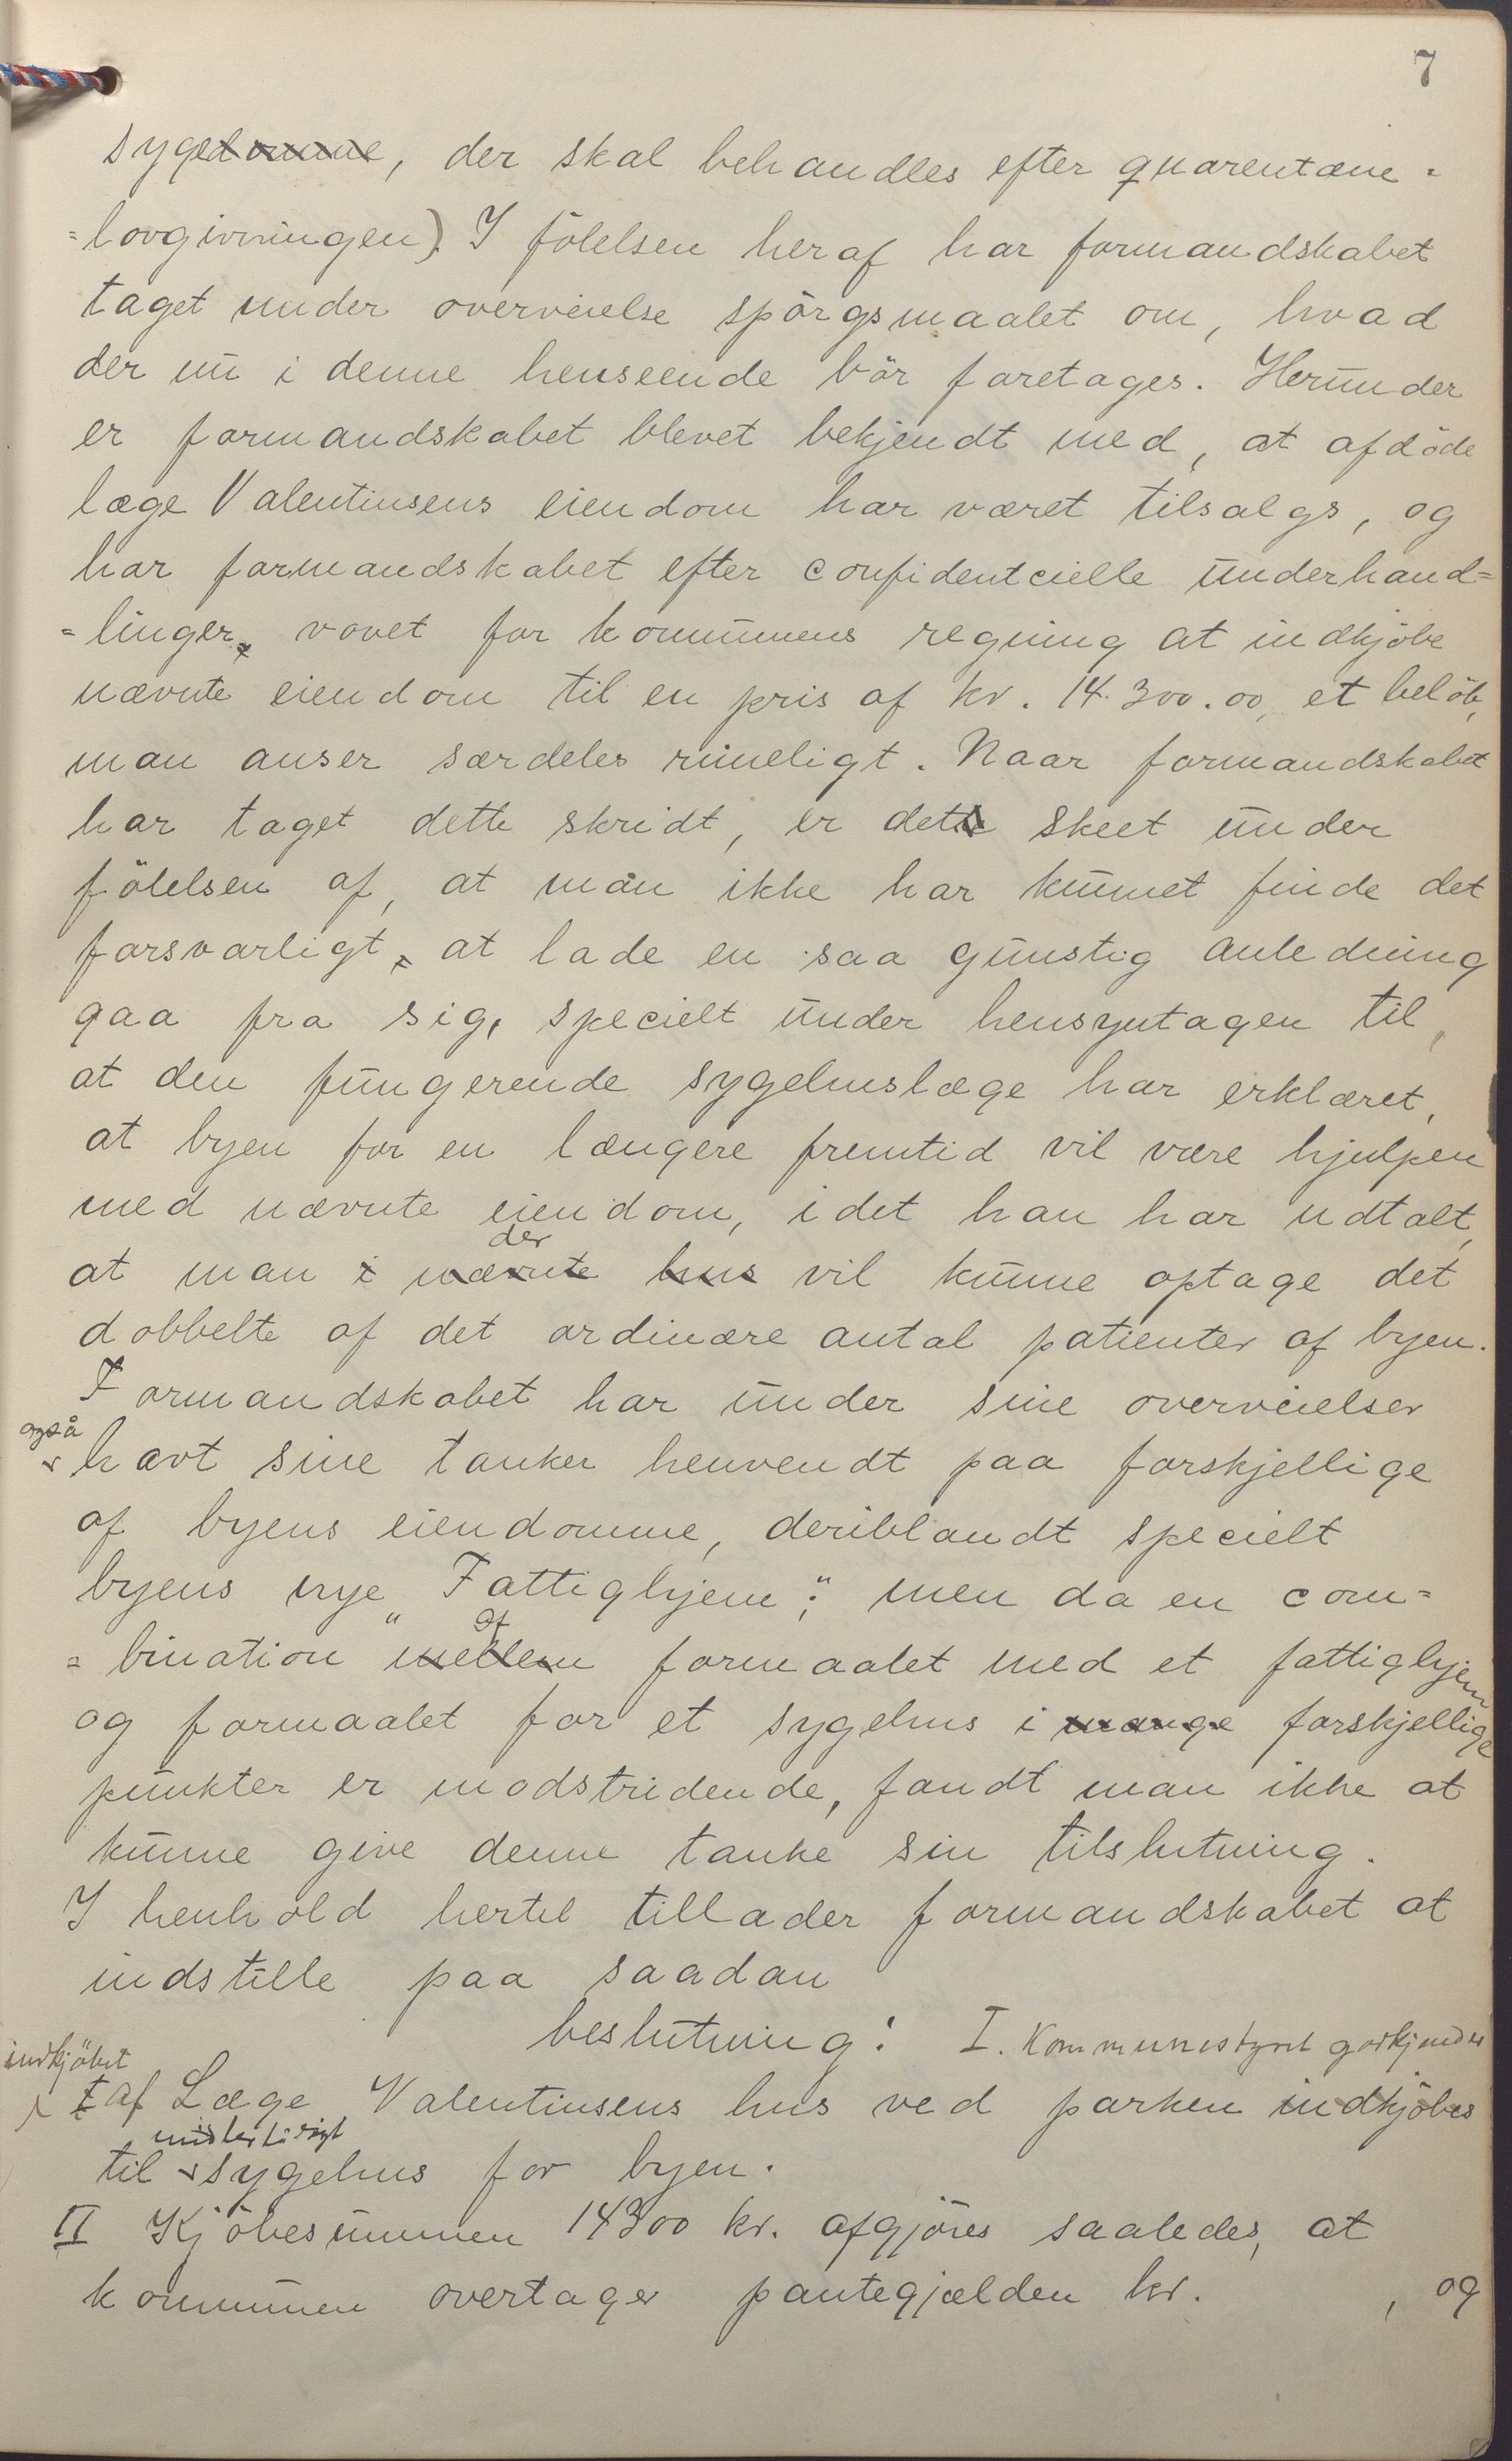 7
sygedomme, der skal behandles efter quarentæne=
=lovgivningen). I følelsen heraf har formandskabet
taget under overveielse spörgsmaalet om, hvad
der nu i denne henseende bör foretages. Herunder
er formandskabet blevet bekjendt med, at afdöde
læge Valentinsens eiendom har været tilsalgs, og
har formandskabet efter confidentcielle underhand=
=linger vovet for kommunens regning at indkjöbe
nævnte eiendom til en pris af kr. 14.300.00, et belöb,
man anser særdeles rimeligt. Naar formandskabet
har taget dette skridt, er det skeet under
fölelsen af, at man ikke har kunnet finde det
forsvarligt, at lade en saa gunstig anledning
gaa fra sig, specielt under hensyntagen til,
at den fungerende sygehuslæge har erklæret,
at byen for en længere fremtid vil være hjulpen
med nævnte eiendom, idet han har udtalt,
der
at man i nævnte hus vil kunne optage det
dobbelte af det ordinære antal patienter af byen.
Formandskabet har under sine overveielser
også
havt sine tanker henvendt paa forskjellige
af byens eiendomme, deriblandt specielt
byens nye „Fattighjem“; men da en com=
af
=bination mellem formaalet med et fattighjem
og formaalet for et sygehus i mange forskjellige
punkter er modstridende, fandt man ikke at
kunne give denne tanke sin tilslutning.
I henhold hertil tillader formandskabet at
indstille paa saadan
beslutning: I. Kommunestyret godkjender
indkjöbet
af Læge Valentinsens hus ved parken indkjöbes
midlertidigt
til sygehus for byen.
II Kjöbesummen 14300 kr. afgjöres saaledes, at
kommunen overtager pantegjælden kr. , og